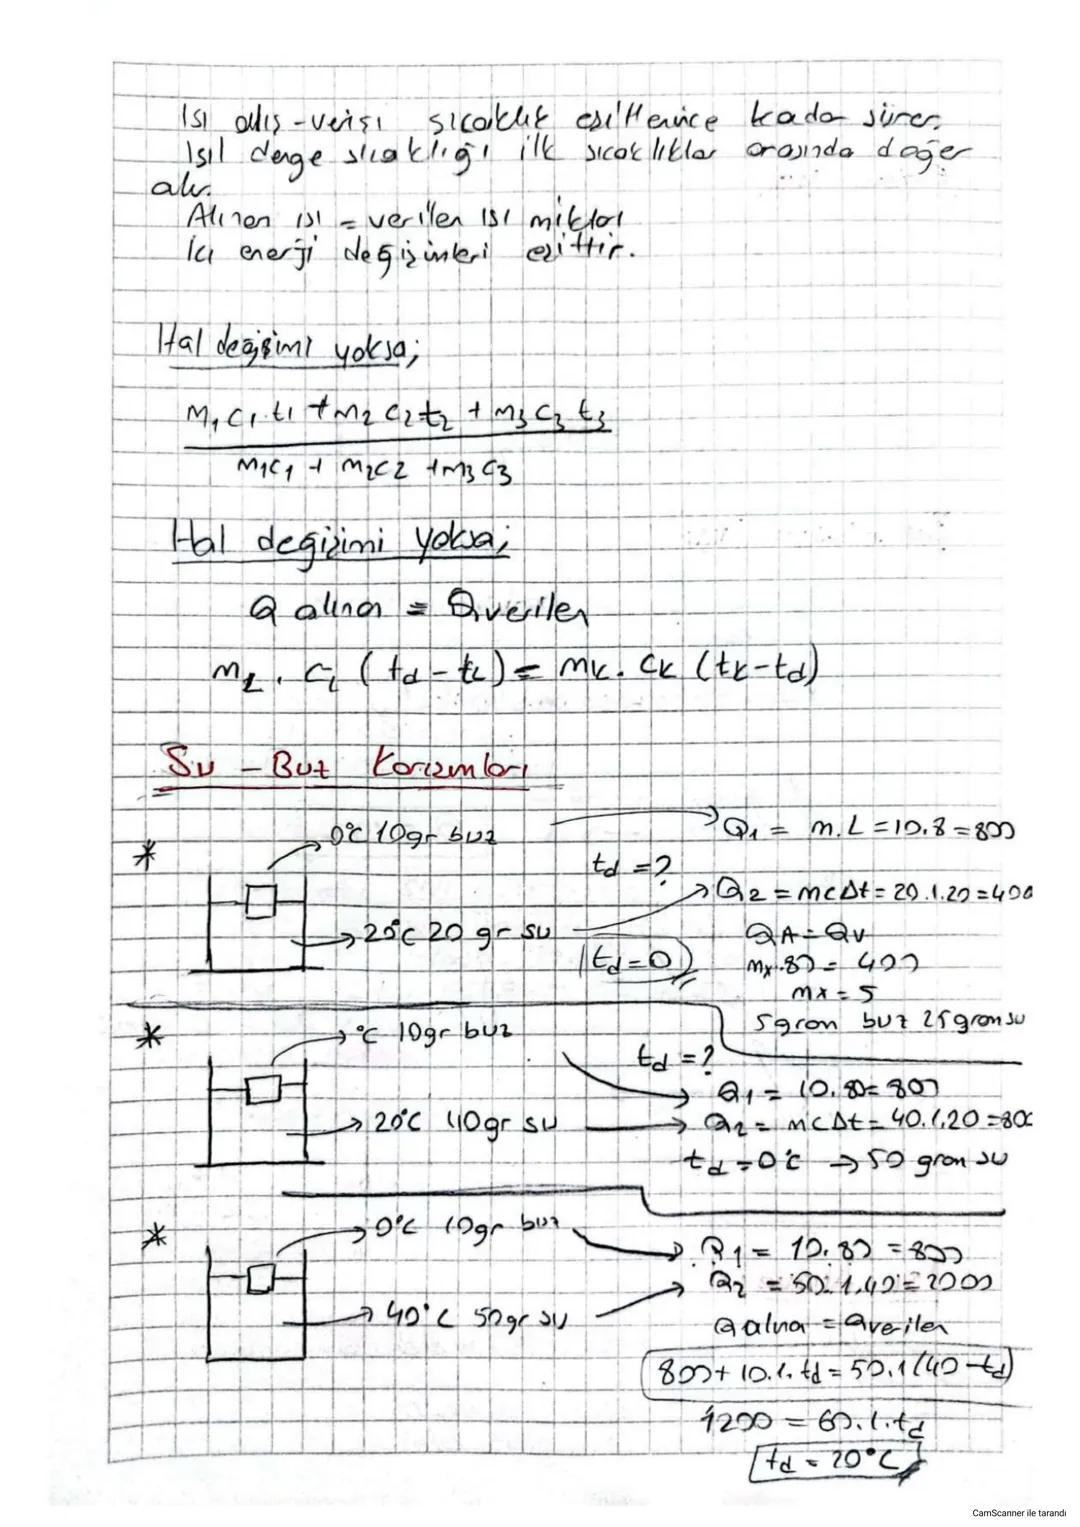 Isı alış-verişi sıcaklık eşitlenince kadar sürer.
Isıl denge sıcaklığı ilk sıcaklıklar arasında değer
alır.
Alınan ısı = verilen ısı miktarı
İç enerji değişimleri eşittir.
Hal değişimi yoksa;
m₁c₁.t₁ + m₂c₂t₂ + m₃c₃t₃
m₁c₁ + m₂c₂ + m₃c₃
Hal değişimi yoksa;
Q alınan = Qverilen
m₁.c₁(td-t₁) = mk.ck(tk-td)
Su - Buz Karışımları
* 0°C 10gr buz
td = ?
20°C 20 gr su
td=0
Q₁ = m.L = 10.8 = 800
Q₂ = mcΔt = 20.1.20 = 400
QA = QV
mx.80 = 400
mx = 5
5 gram buz 25 gram su
* °C 10gr buz
td = ?
20°C 40gr su
Q₁ = 10.80 = 800
Q₂ = mcΔt = 40.1.20 = 800
td = 0°C → 50 gram su
* 0°C 10gr buz
40°C 50gr su
Q₁ = 10.80 = 800
Q₂ = 50.1.40 = 2000
Qalınan = Qverilen
800 + 10.1.td = 50.1(40-td)
1200 = 60.1.td
td = 20°C
CamScanner ile tarandı